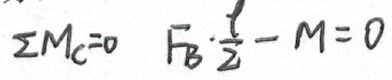 ΣM_C=0 F_B·l/2 - M = 0